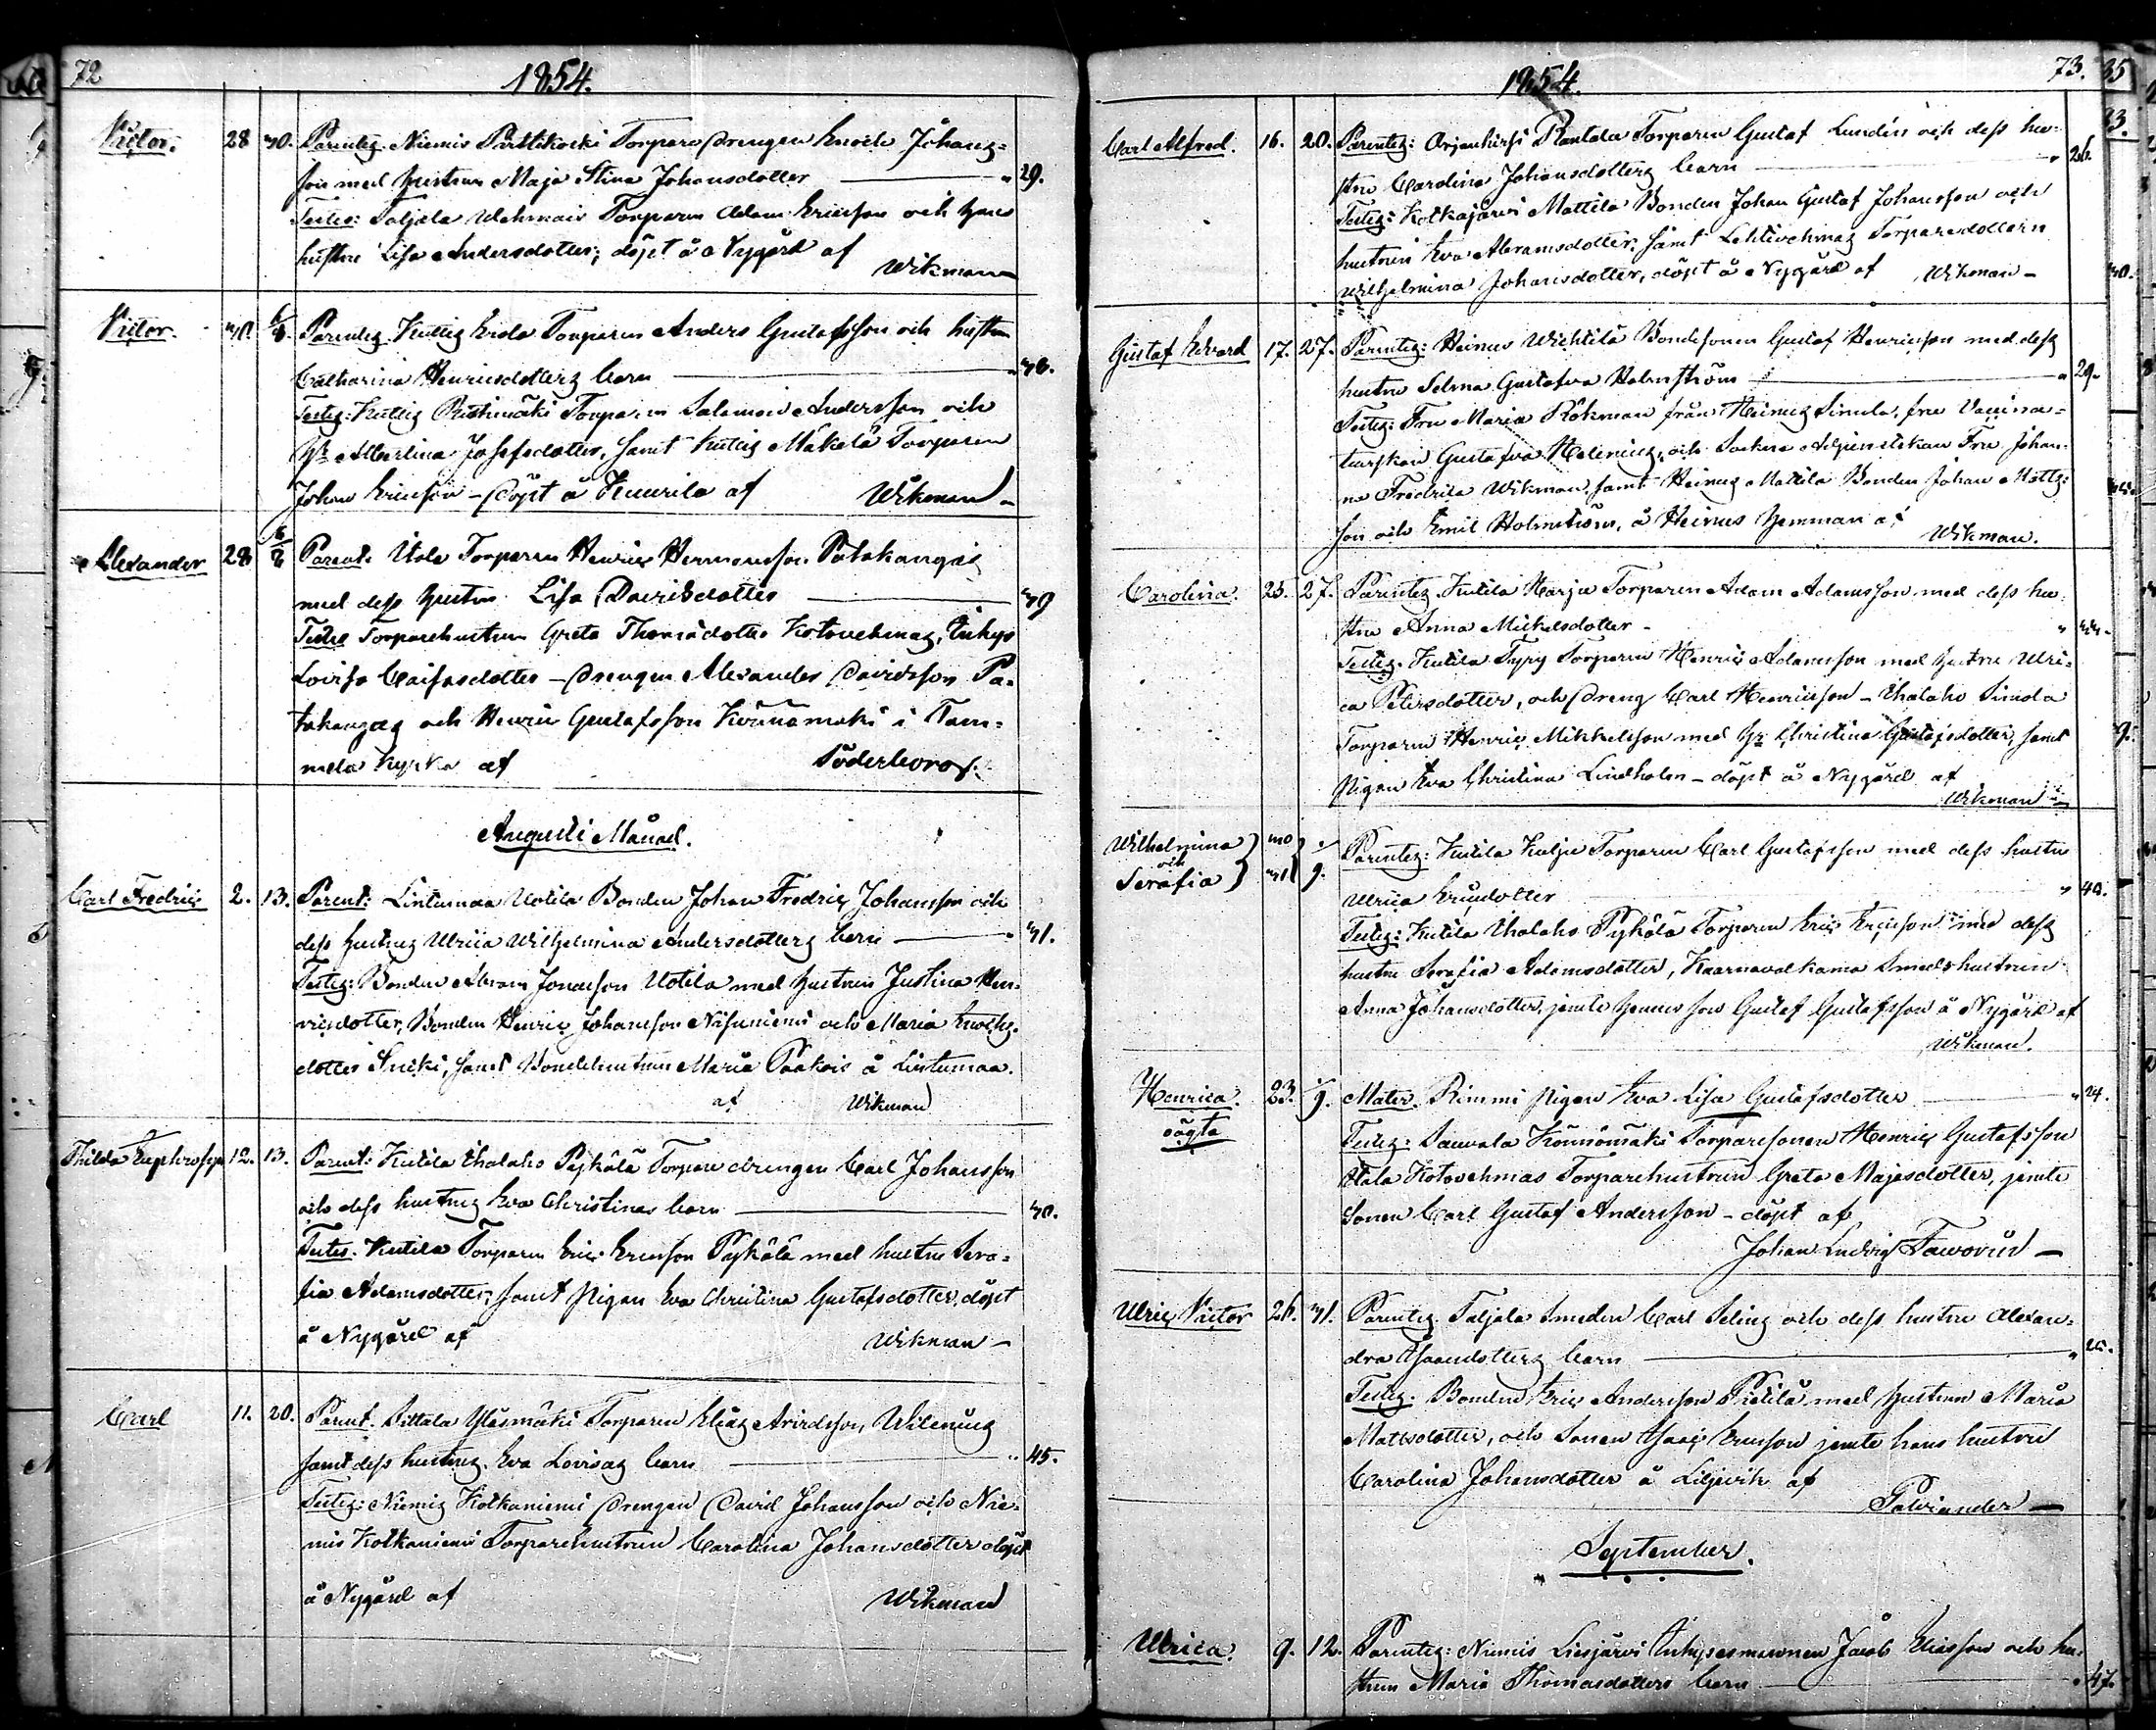 72
1854.
Victor. 28 30. Parentes. Niemis Torpare drengen Enoch Johans=
son med hustrun Maja Stina Johansdotter — " 29.
Testes: Taljala Torparen Adam Ericsson och hans
hustru Lisa Andersdotter; döpt å Nygård af
Wikman
Victor. 30. 6/8. Parentes. Torparen Anders Gustafsson och hustru
Catharina Henricsdotters barn — " 36.
Testes: Torparen Salomon Andersson och
Hr Albertina Josefsdotter, samt Mäkelä Torparen
Johan Ericsson – döpt å Kuurila af Wikman –
Alexander 28 6/8 Parent. Uttola Torparen Henric Hermansson Patakangas
med dess hustru Lisa Davidsdotter — 39
Testes Torparehustrun Greta Thomasdotter Kotovehmas, Inhys
Lovisa Caisasdotter – drengen Alexander Davidsson Pa=
takangas och Henric Gustafsson i Tam=
mela kyrka af Söderborg.
Augusti Månad.
Carl Fredric 2. 13. Parent: Lintumaa Uotila Bonden Johan Fredric Johansson och
dess hustrus Ulrica Wilhelmina Andersdotters barn — " 31.
Testes: Bonden Abram Jonasson Uotila med hustrun Justina Hen=
ricsdotter, Bonden Henric Johansson och Maria Enochs=
dotter, samt Bondehustrun Maria å Lintumaa.
af Wikman
Thilda 12. 13. Parent: Kutila Uhalaho Pyhälä Torpare drengen Carl Johansson
och dess hustrus Eva Christinas barn — 30.
Testes. Kutila Torparen Eric Ericsson Pyhälä med hustru Sera=
fia Adamsdotter, samt pigan Eva Christina Gustafsdotter, döpt
å Nygård af Wikman –
Carl 11. 20. Parent. Sittala Yläsmäki Torparen Elias Arvidsson, Wilenius
samt dess hustrus Eva Lovisas barn — " 45.
Testes: Niemis Kolkaniemi drengen David Johansson och Nie=
mis Kolkaniemi Torparehustrun Carolina Johansdotter döpt
å Nygård af Wikman
1854.
73.
Carl Alfred. 16. 20. Parentes: Orjanhirsi Rantala Torparen Gustaf Lundén och dess hu=
stru Carolina Johansdotters barn — " 26.
Testes: Kolkajärvi Mattila Bonden Johan Gustaf Johansson och
hustrun Eva Abramsdotter, samt Torparedottern
Wilhelmina Johansdotter, döpt å Nygård af Wikman –
Gustaf Edvard 17. 27. Parentes: Heinus Bondesonen Gustaf Henricsson med dess
hustru Selma Gustafva Holmström — " 29.
Testes: Fru Maria Rökman från Heinus Simula, fru Vaccina=
turskan Gustafva Helenius, och Sockne Adjunctskan Fru Johan=
na Fredrika Wikman, samt Heinus Mattila Bonden Johan Matts=
son och Emil Holmström, å Heinus hemman af Wikman.
Carolina. 25. 27. Parentes Kutila Harju Torparen Adam Adamsson med dess hu=
stru Anna Michelsdotter – " 44.
Testes. Kutila Torparen Henric Adamsson med hustru Ulri=
ca Petersdotter, och dreng Carl Henricsson – Uhalaho Simola
Torparen Henric Mikkelsson med Hr Christina Gustafsdotter, samt
pigan Eva Christina Lindholm – döpt å Nygård af
Wikman
Wilhelmina
och
Serafia 30 31 1/9. Parentes: Kutila Torparen Carl Gustafsson med dess hustru
Ulrica Ericsdotter " 40.
Testes: Kutila Uhalaho Pyhälä Torparen Eric Ericsson med dess
hustru Serafia Adamsdotter, Smedshustrun
Anna Johansdotter, jemte hennes son Gustaf Gustafsson å Nygård af
Wikman.
Henrica.
oägta 23. 1/9. Mater. Rimmi pigan Eva Lisa Gustafsdotter — " 24.
Testes: Sauvala Torparesonen Henric Gustafsson
Kotovehmas Torparehustrun Greta Majasdotter, jemte
Sonen Carl Gustaf Andersson – döpt af
Johan Ludvig Faworin –
Ulric Victor 26. 31. Parentes. Taljala Smeden Carl Selins och dess hustru Alexan=
dra Isacsdotters barn — " 25.
Testes. Bonden Eric Andersson med hustrun Maria
Mattsdotter, och Sonen Isac Ericsson jemte hans hustru
Carolina Johansdotter å Liljevik af
Palviander –
September.
Ulrica. 9. 12. Parentes: Niemis Liesjärvi Inhysesmannen Jacob Eliasson och hu=
strun Maria Thomasdotters barn — " 47.